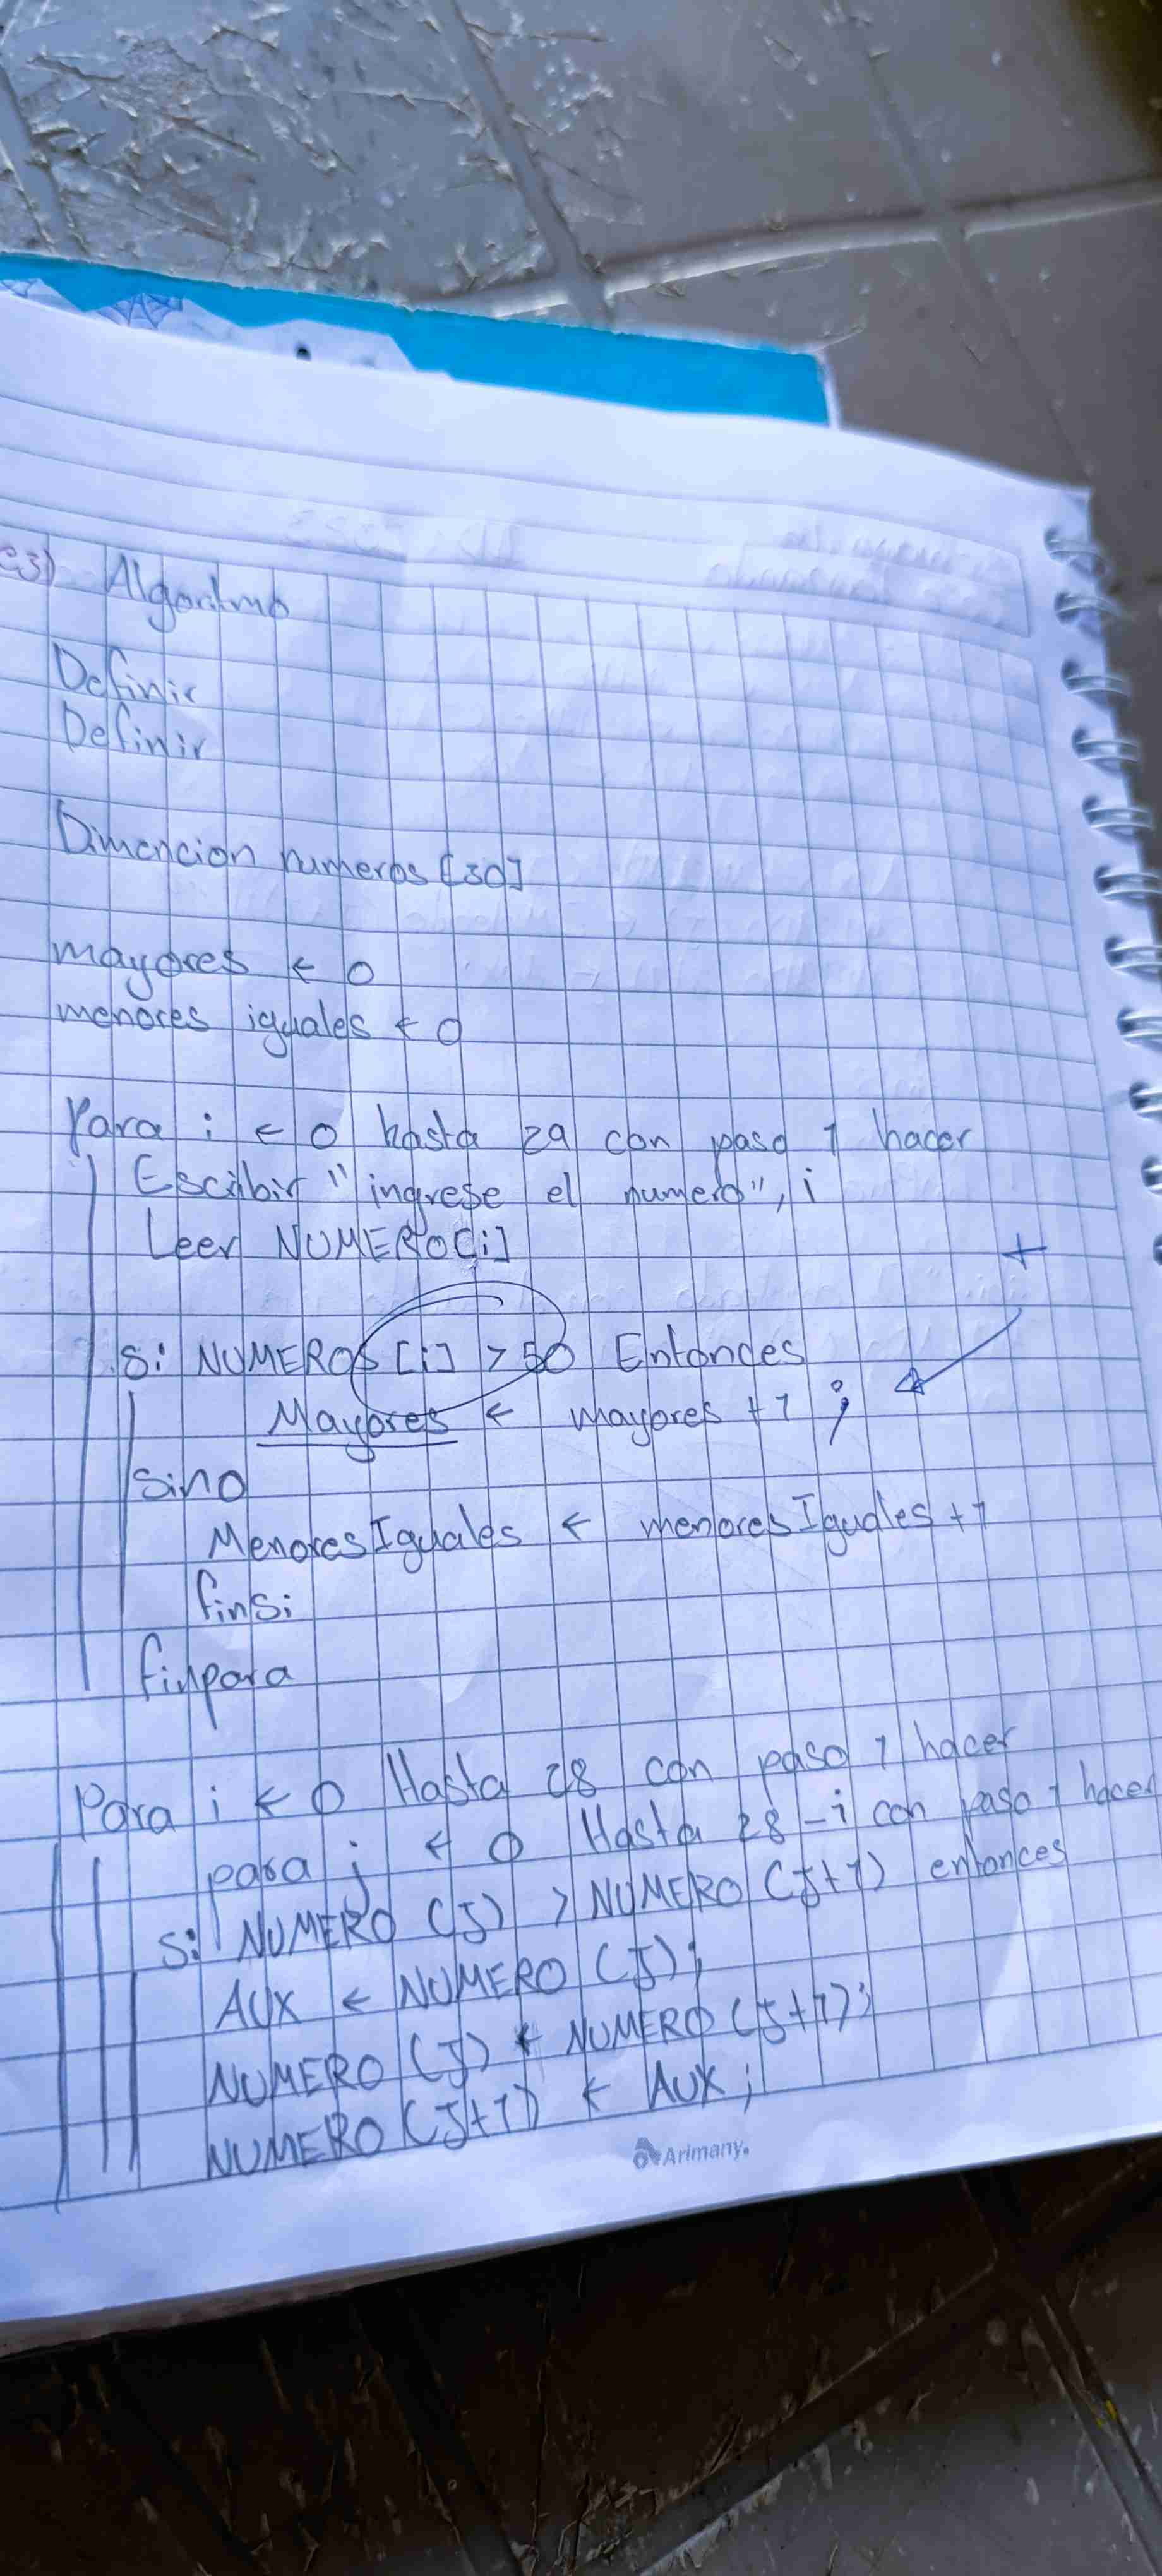 e3) Algoritmo
Definir
Definir
Dimencion numeros [30]
mayores ← 0
menores iguales ← 0
Para i ← 0 hasta 29 con paso 1 hacer
Escribir "ingrese el numero", i
Leer NUMERO[i]
+
Si NUMEROS [i] > 50 Entonces
Mayores ← mayores + 1 ;
sino
MenoresIguales ← menoresIguales + 1
finsi
finpara
Para i ← 0 Hasta 28 con paso 1 hacer
para j ← 0 Hasta 28 - i con paso 1 hacer
Si NUMERO (J) > NUMERO (J+1) entonces
AUX ← NUMERO (J);
NUMERO (J) ← NUMERO (J+1);
NUMERO (J+1) ← AUX ;
Arimany.